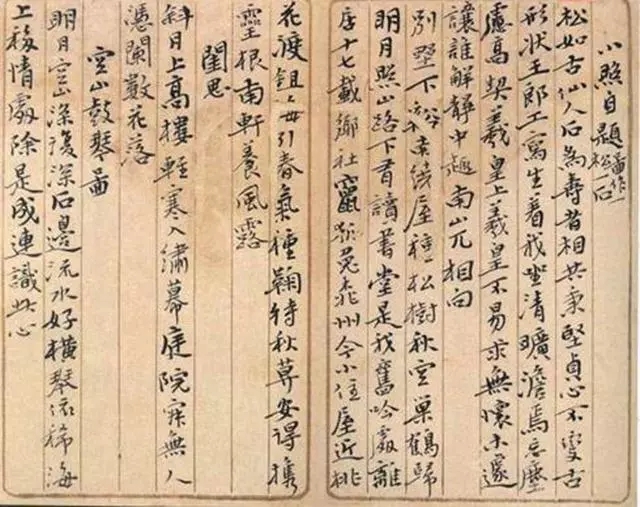 小照自題 畫作松石
松如古仙人石為壽者相共秉堅貞心不變古
形狀王郎工寫生着我坐清曠澹焉忘塵
慮高契羲皇上羲皇不易求無懷未遽
讓誰解靜中趣南山兀相向
別墅下 繞屋種松樹秋空巢鶴歸
明月照山路下有讀書堂是我舊吟處離
居十七載鄉社竄 兔 州今小住屋近桃
花渡鉏 引春氣種鞠待秋莫安得攜
靈根南軒養風露
閨思
斜日上高樓輕寒入繡幕庭院寂無人
憑闌數花落
空山鼓琴圖
明月空山深復深石邊流水好橫琴依稀海
上移情處除是成連識此心